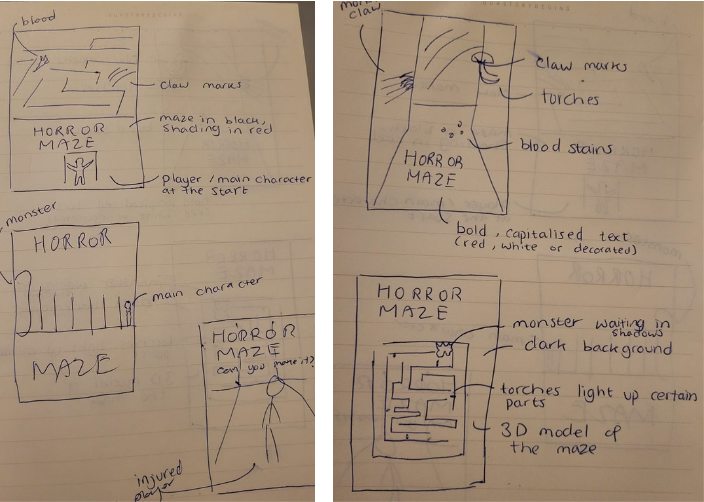 blood
claw marks
maze in black,
shading in red
HORROR
MAZE
player/main character
at the start
monster
HORROR
main character
MAZE
HORROR
MAZE
can you make it?
injured
player
claw
claw marks
torches
blood stains
HORROR
MAZE
bold, capitalised text
(red, white or decorated)
HORROR
MAZE
monster waiting in
shadows
dark background
torches light up certain
parts
3D model of
the maze